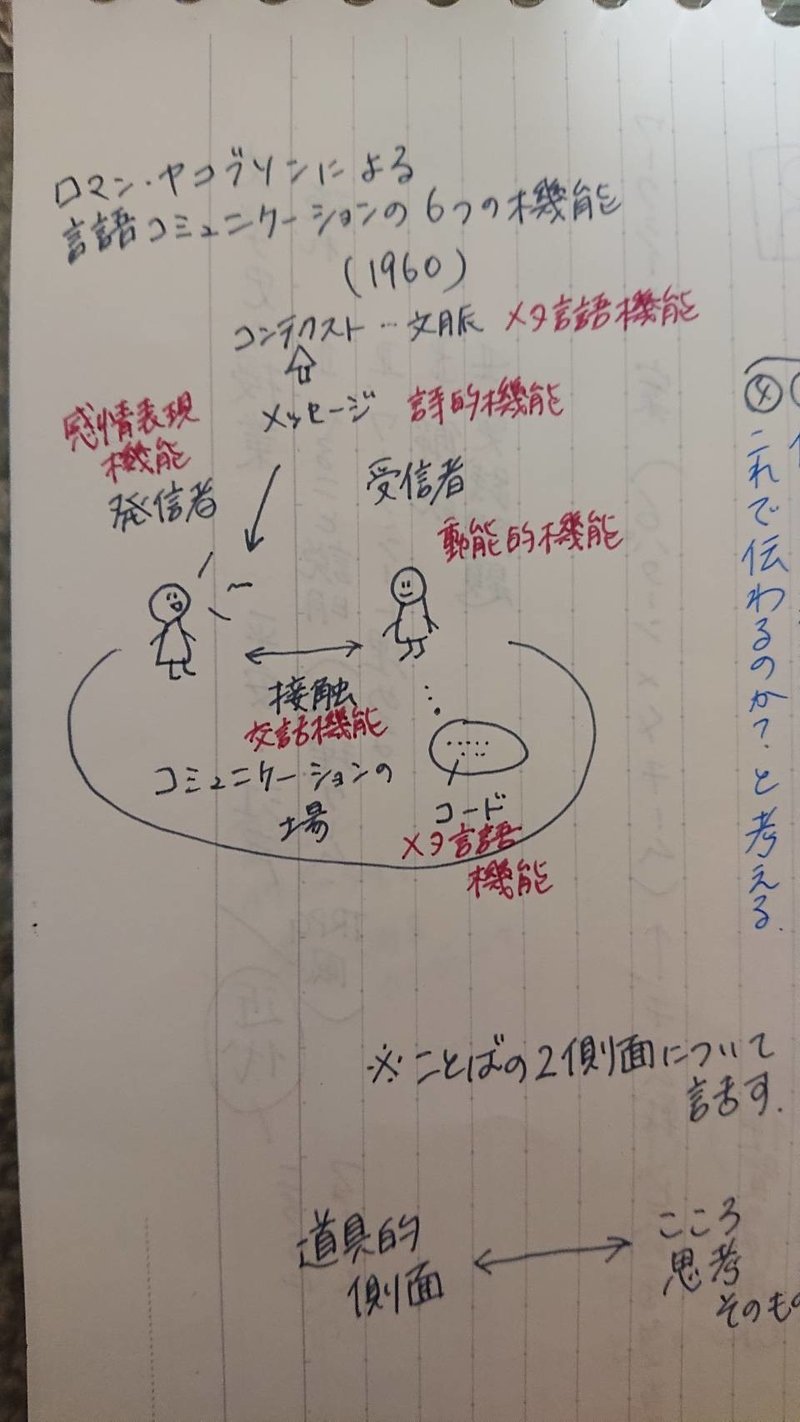 ロマン・ヤコブソンによる
言語コミュニケーションの6つの機能
(1960)
コンテクスト…文脈 メタ言語機能
メッセージ 詩的機能
感情表現
機能
発信者
受信者
動能的機能
接触
交話機能
コミュニケーションの
場
コード
メタ言語
機能
これで伝わるのか?と考える.
※ことばの2側面について
話す.
道具的
側面
こころ
思考
そのもの